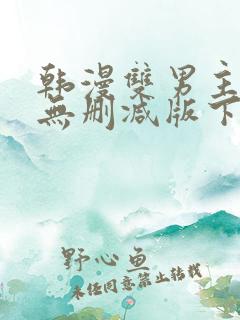 韩漫雙男主
無删减版下
野心鱼
未经同意禁止转载